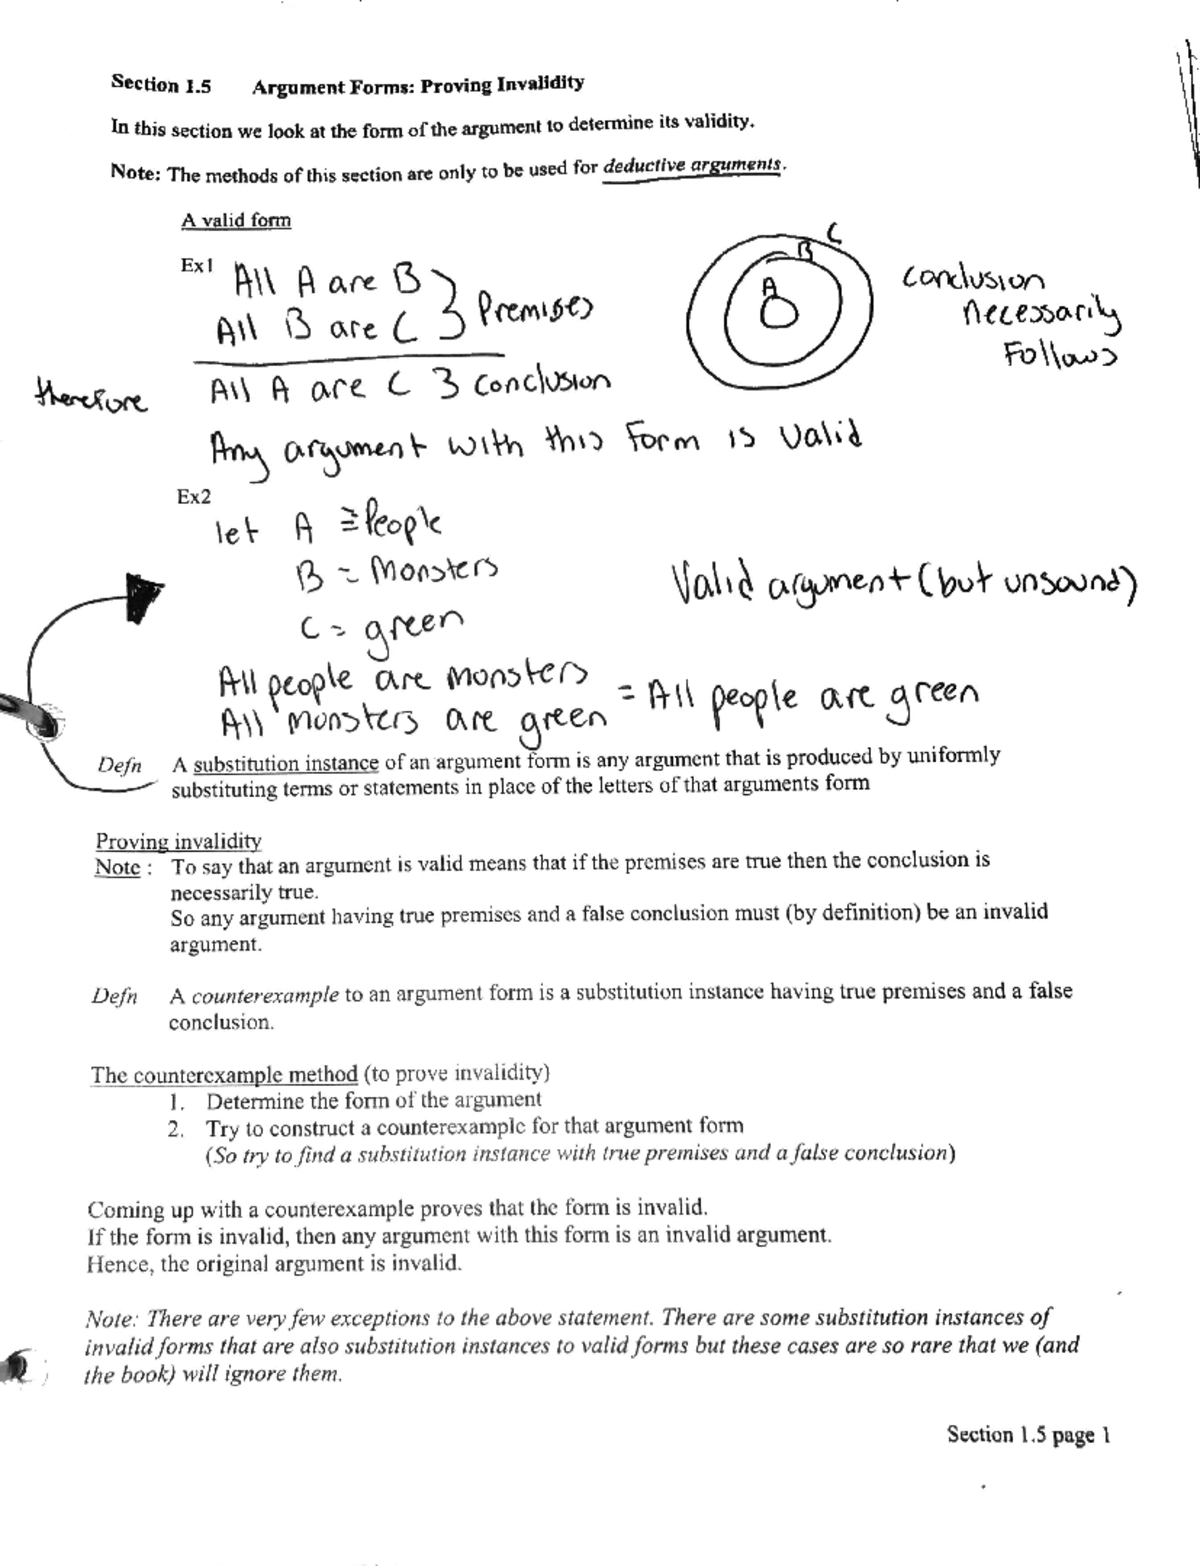 Section 1.5 Argument Forms: Proving Invalidity
In this section we look at the form of the argument to determine its validity.
Note: The methods of this section are only to be used for deductive arguments.
A valid form
Ex1 All A are B
All B are C } Premises
therefore All A are C } Conclusion
C
B
A
Conclusion
Necessarily
Follows
Any argument with this Form is Valid
Ex2
let A ≅ People
B = Monsters
C = green
Valid argument (but unsound)
All people are monsters
All monsters are green = All people are green
Defn A substitution instance of an argument form is any argument that is produced by uniformly
substituting terms or statements in place of the letters of that arguments form
Proving invalidity
Note : To say that an argument is valid means that if the premises are true then the conclusion is
necessarily true.
So any argument having true premises and a false conclusion must (by definition) be an invalid
argument.
Defn A counterexample to an argument form is a substitution instance having true premises and a false
conclusion.
The counterexample method (to prove invalidity)
1. Determine the form of the argument
2. Try to construct a counterexample for that argument form
(So try to find a substitution instance with true premises and a false conclusion)
Coming up with a counterexample proves that the form is invalid.
If the form is invalid, then any argument with this form is an invalid argument.
Hence, the original argument is invalid.
Note: There are very few exceptions to the above statement. There are some substitution instances of
invalid forms that are also substitution instances to valid forms but these cases are so rare that we (and
the book) will ignore them.
Section 1.5 page 1